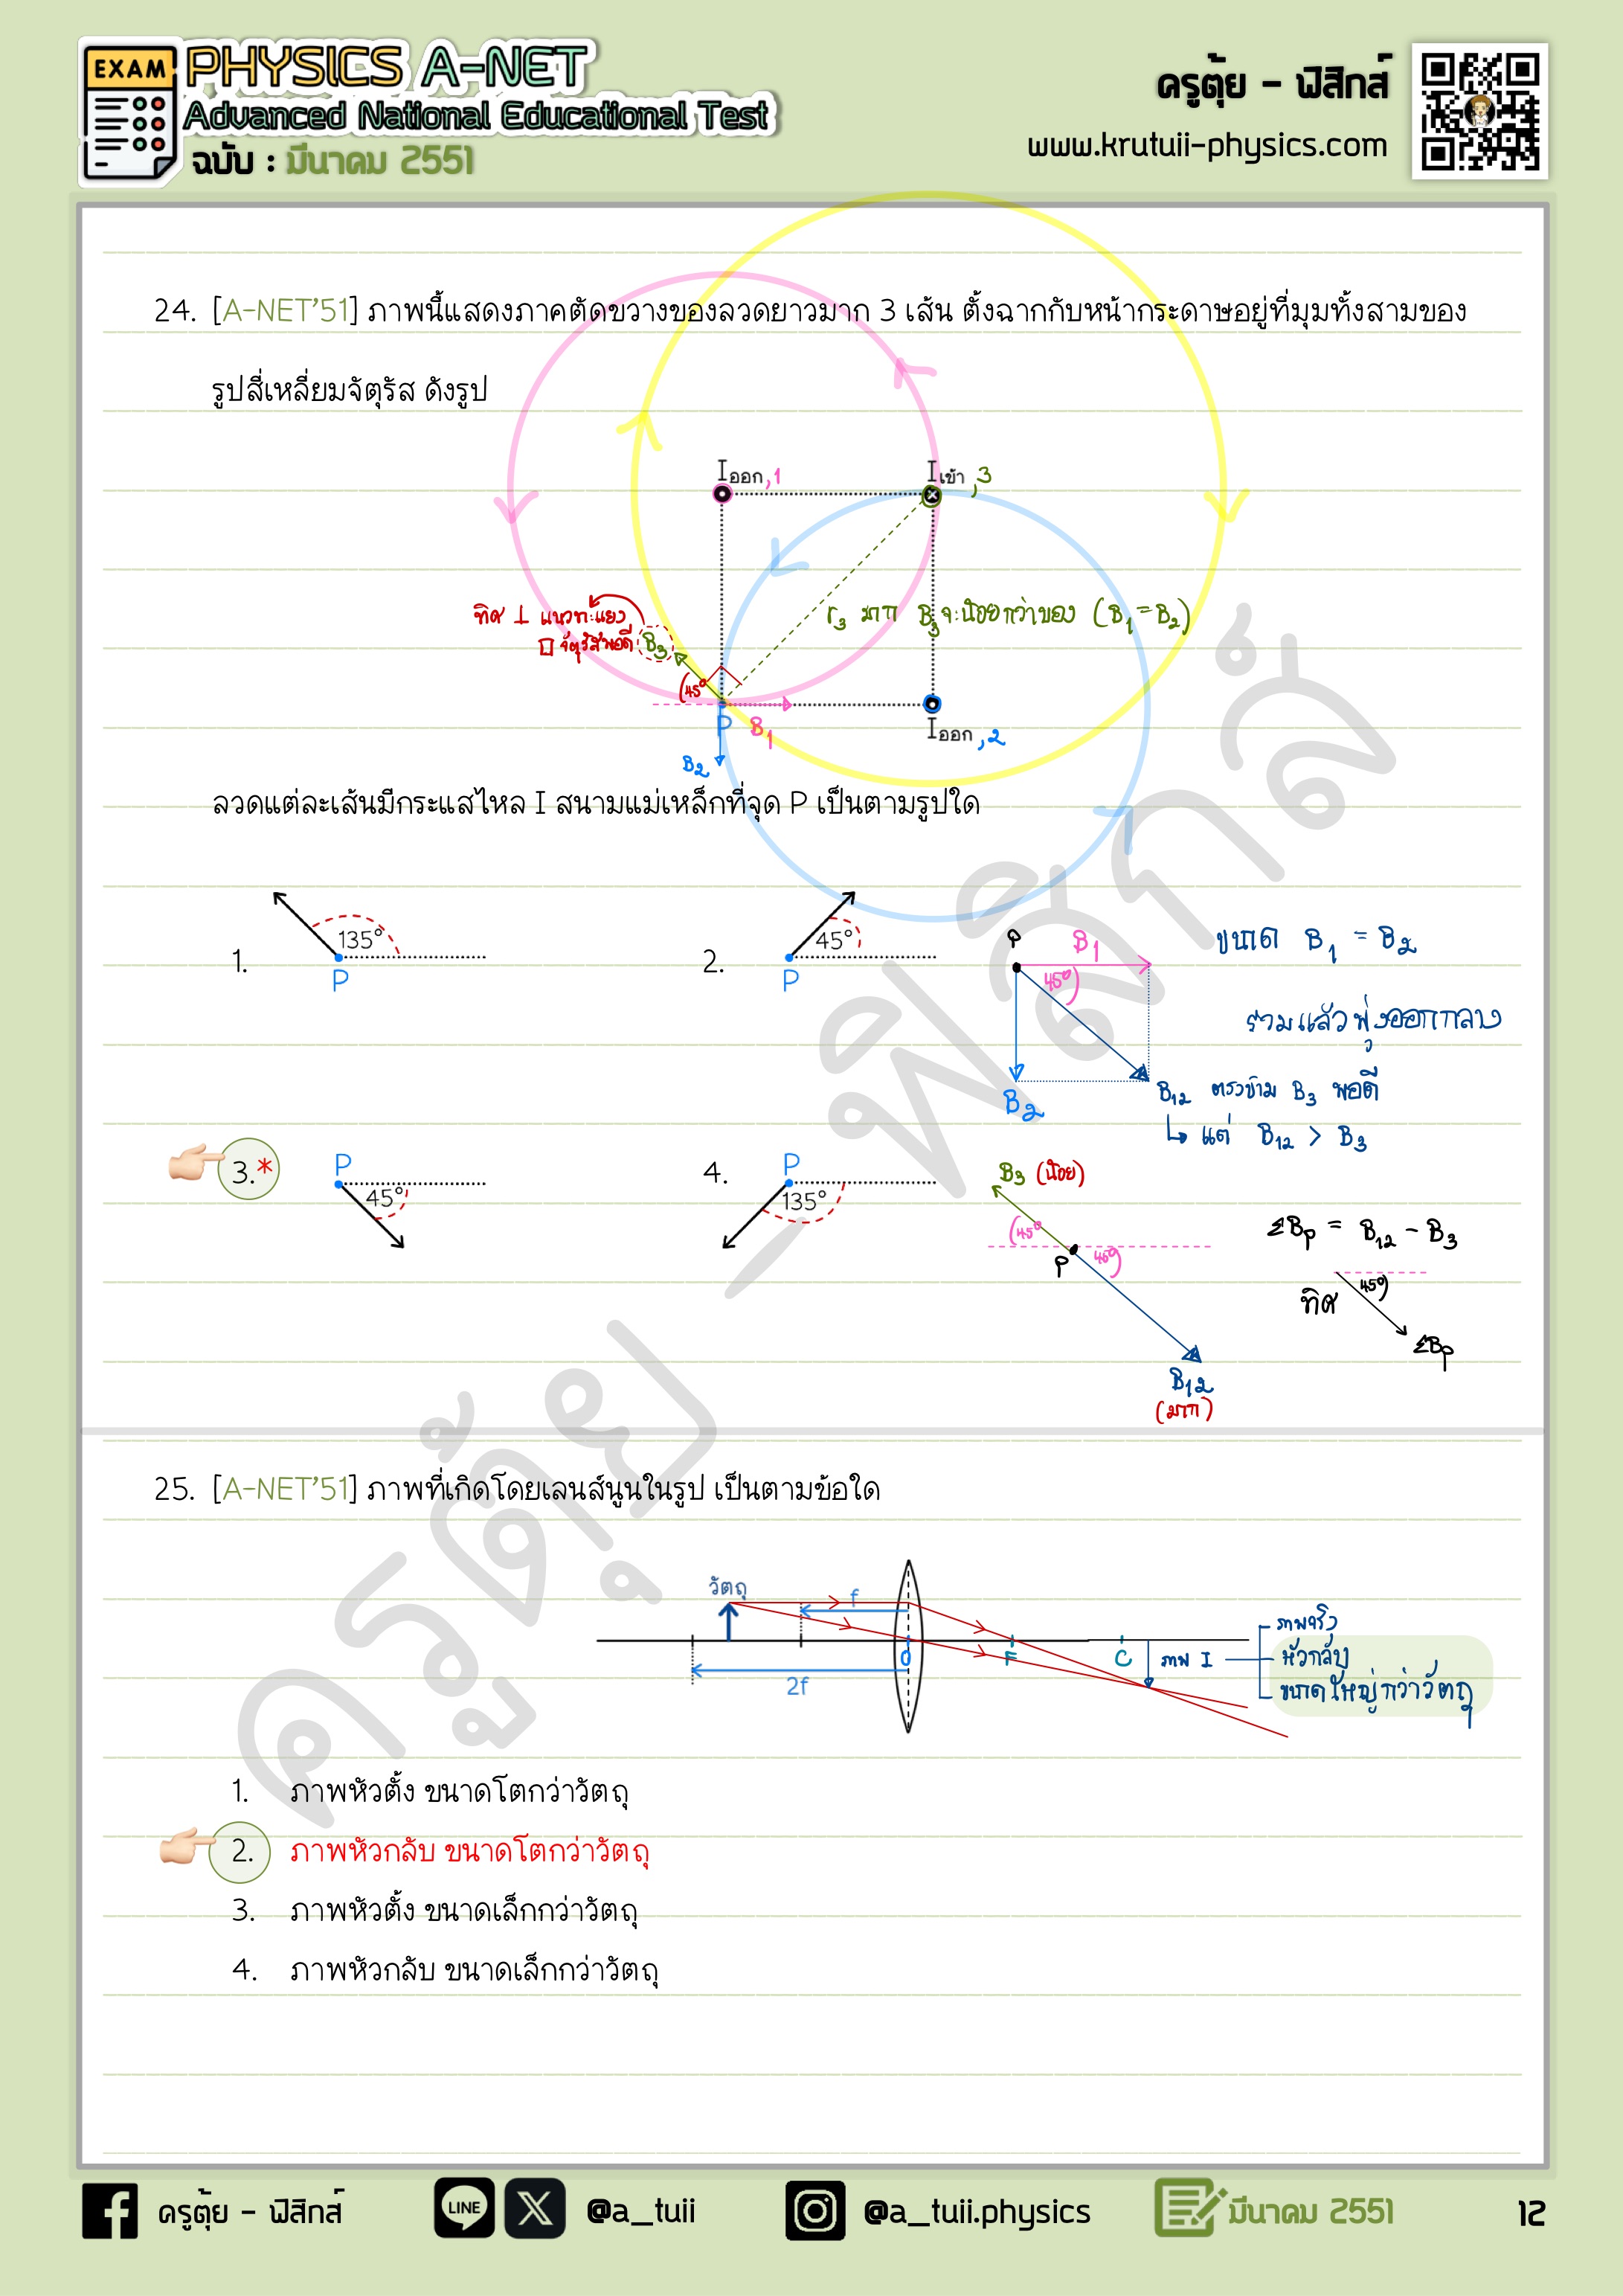 EXAM
PHYSICS A-NET
Advanced National Educational Test
ฉบับ : มีนาคม 2551
ครูตุ้ย - ฟิสิกส์
www.krutuii-physics.com
24. [A-NET'51] ภาพนี้แสดงภาคตัดขวางของลวดยาวมาก 3 เส้น ตั้งฉากกับหน้ากระดาษอยู่ที่มุมทั้งสามของ
รูปสี่เหลี่ยมจัตุรัส ดังรูป
Iออก,1
Iเข้า,3
ทิศ ⊥ แนวทะแยง
□ จัตุรัสพอดี
B3
r3 มาก B3 จะน้อยกว่าของ (B1 = B2)
45°
P B1
Iออก,2
B2
ลวดแต่ละเส้นมีกระแสไหล I สนามแม่เหล็กที่จุด P เป็นตามรูปใด
1. 135° P
2. 45° P
P B1 45° B2
ขนาด B1 = B2
รวมแล้วพุ่งออกกลาง
B12 ตรงข้าม B3 พอดี
↳ แต่ B12 > B3
3.* P 45°
4. P 135°
B3 (น้อย)
45° P 45°
B12
(มาก)
ΣBP = B12 - B3
ทิศ 45° ΣBP
25. [A-NET'51] ภาพที่เกิดโดยเลนส์นูนในรูป เป็นตามข้อใด
วัตถุ f
2f O F C
ภาพ I
ภาพจริง
หัวกลับ
ขนาดใหญ่กว่าวัตถุ
1. ภาพหัวตั้ง ขนาดโตกว่าวัตถุ
2. ภาพหัวกลับ ขนาดโตกว่าวัตถุ
3. ภาพหัวตั้ง ขนาดเล็กกว่าวัตถุ
4. ภาพหัวกลับ ขนาดเล็กกว่าวัตถุ
ครูตุ้ย - ฟิสิกส์
ครูตุ้ย - ฟิสิกส์
LINE
@a_tuii
@a_tuii.physics
มีนาคม 2551
12